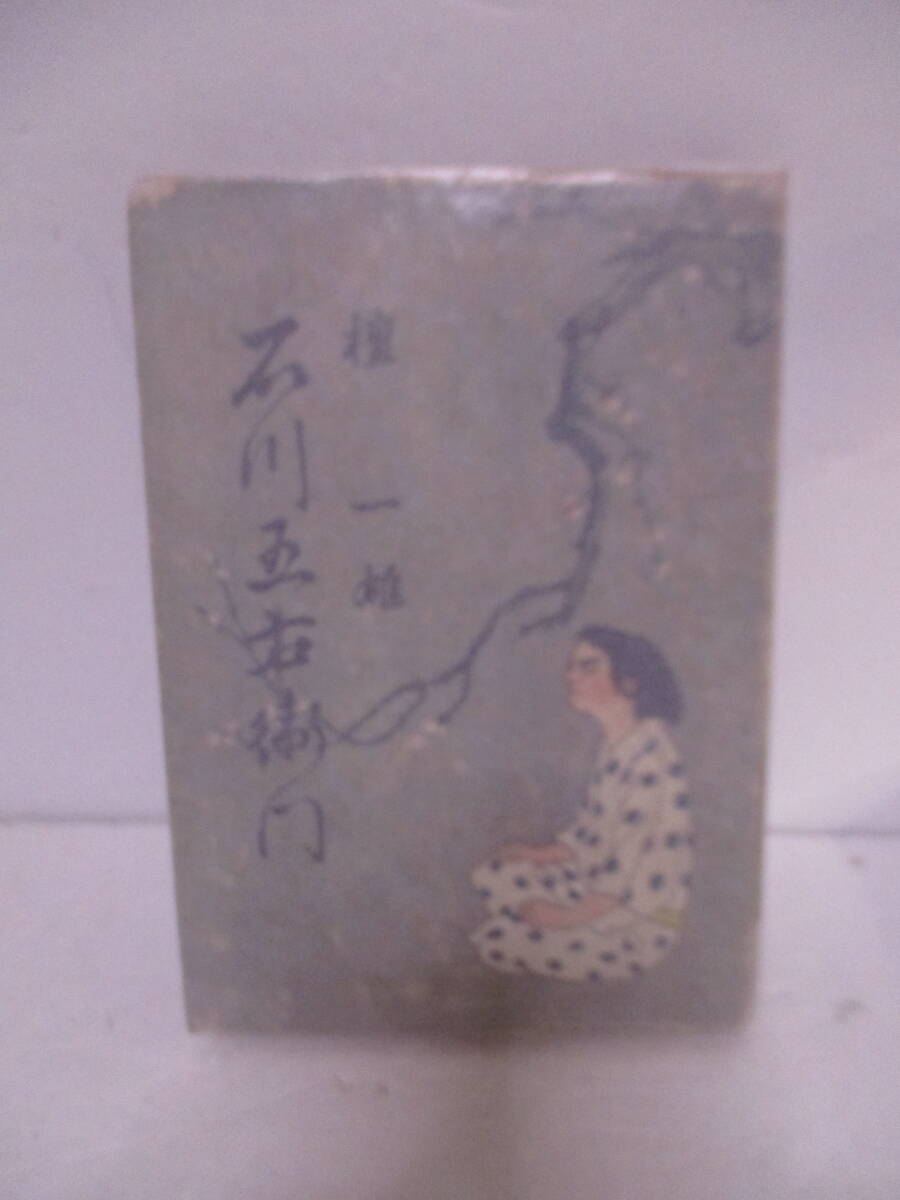 檀一雄
石川五右衛門